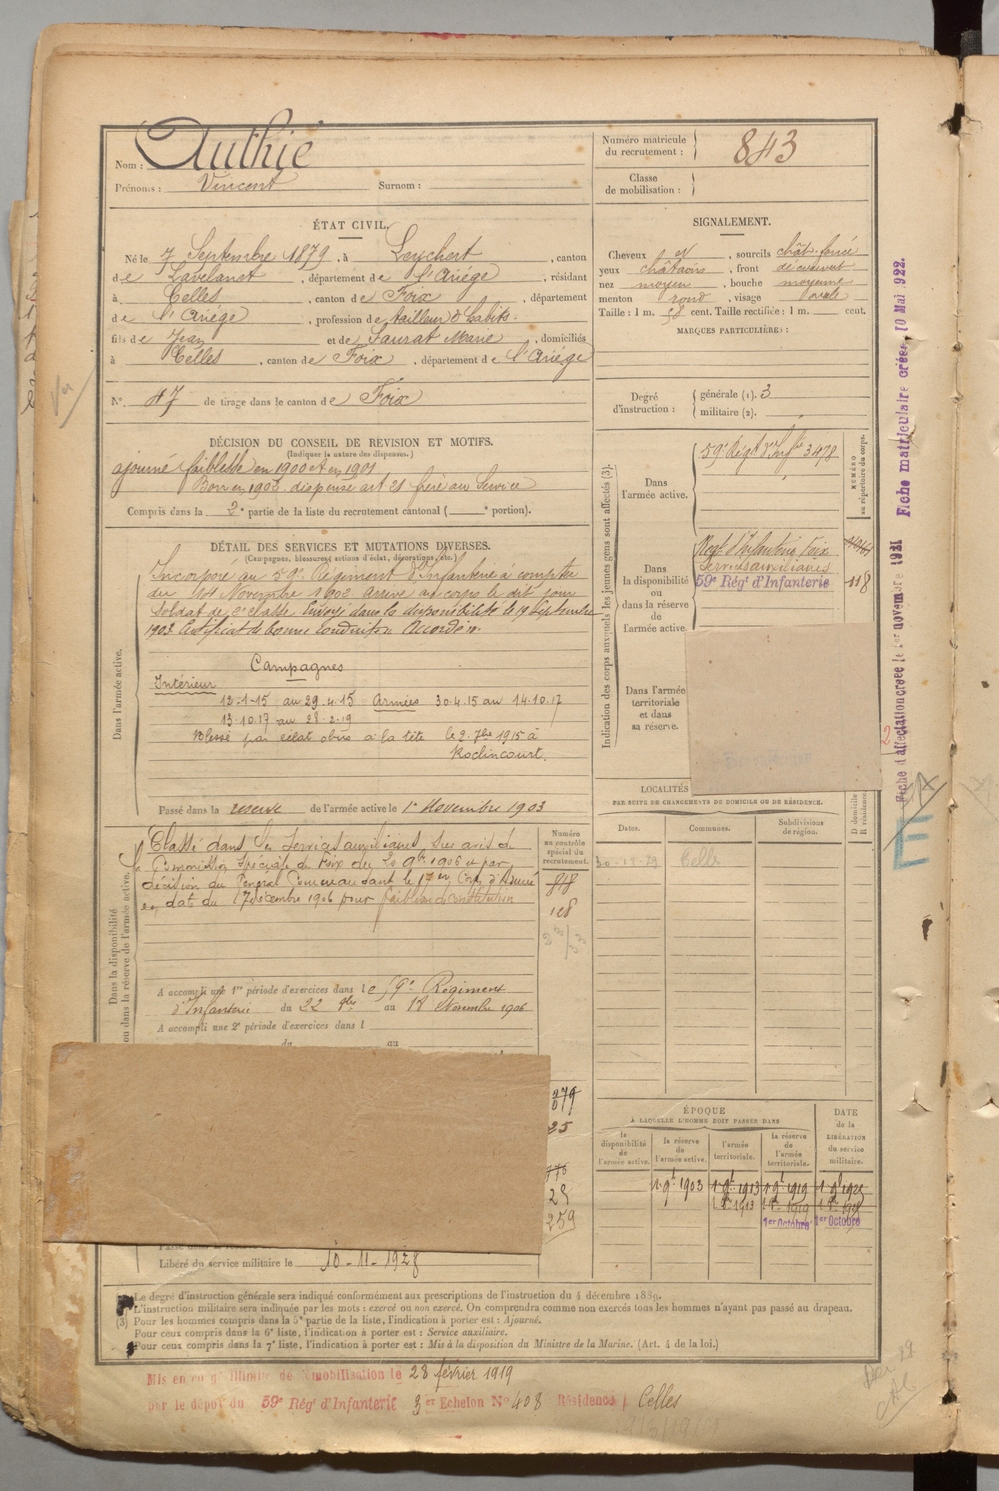 Nom : Authié
Prénoms : Vincent Surnom :
Numéro matricule du recrutement : 843
Classe de mobilisation :
ÉTAT CIVIL.
Né le 7 Septembre 1879, à Leychert, canton
de Lavelanet, département de l'Ariége, résidant
à Celles, canton de Foix, département
de l'Ariége, profession de tailleur d'habits.
fils de Jean et de Faurat Marie, domiciliés
à Celles, canton de Foix, département de l'Ariége
N° 47 de tirage dans le canton de Foix
SIGNALEMENT.
Cheveux N, sourcils chât. foncé
yeux châtains, front découvert
nez moyen, bouche moyenne
menton rond, visage ovale
Taille : 1 m. 58 cent. Taille rectifiée : 1 m. cent.
MARQUES PARTICULIÈRES :
Degré d'instruction : générale (1). 3
militaire (2).
DÉCISION DU CONSEIL DE REVISION ET MOTIFS.
(Indiquer la nature des dispenses.)
ajourné faiblesse en 1900 et en 1901
Bon en 1902 dispensé art 21 frère au Service
Compris dans la 2e partie de la liste du recrutement cantonal ( e portion).
DÉTAIL DES SERVICES ET MUTATIONS DIVERSES.
(Campagnes, blessures, actions d'éclat, décorations, etc.)
Dans l'armée active.
Incorporé au 59e Régiment d'Infanterie à compter
du 14 Novembre 1902 arrivé au corps le dit jour
Soldat de 2e classe. Envoyé dans la disponibilité le 19 Septembre
1903 Certificat de bonne conduite Accordé
Campagnes
Intérieur
12-1-15 au 29-4-15 Armées 30.4.15 au 14.10.17
15.10.17 au 28-2-19
Blessé par éclat obus à la tête le 2. 7bre 1915 à
Roclincourt.
Passé dans la reserve de l'armée active le 1er Novembre 1903
Indication des corps auxquels les jeunes gens sont affectés (3).
NUMÉRO au répertoire du corps.
Dans l'armée active.
59e Régt d'Inf.rie 3478
Dans la disponibilité ou dans la réserve de l'armée active.
Regt d'Infanterie Foix
Services auxiliaires
59e Rég' d'Infanterie 118
Dans l'armée territoriale et dans sa réserve.
LOCALITÉS
PAR SUITE DE CHANGEMENTS DU DOMICILE OU DE RÉSIDENCE.
Dates. Communes. Subdivisions de région. D domicile R résidence.
30-12-29 Celles
Dans la disponibilité ou dans la réserve de l'armée active.
Numéro au contrôle spécial du recrutement.
Classé dans les Services auxiliaires sur avis de
la Commission Spéciale de Foix du 20 9bre 1906 et par
décision du Général Commandant le 17me Corps d'Armée
en date du 17 décembre 1906 pour faiblesse de constitution
818
128
A accompli une 1re période d'exercices dans le 59e Régiment
d'Infanterie du 22 8bre au 18 Novembre 1906
A accompli une 2e période d'exercices dans l
du au
25
28
259
ÉPOQUE
À LAQUELLE L'HOMME DOIT PASSER DANS
DATE de la LIBÉRATION du service militaire.
la disponibilité de l'armée active.
la réserve de l'armée active.
l'armée territoriale.
la réserve de l'armée territoriale.
1. 9bre 1903 1. 9bre 1913 1. 9bre 1919 1. 9bre 1928
1913 1919
1er Octobre 1er Octobre
Libéré du service militaire le 10-11-1928
Le degré d'instruction générale sera indiqué conformément aux prescriptions de l'instruction du 4 décembre 1889.
L'instruction militaire sera indiquée par les mots : exercé ou non exercé. On comprendra comme non exercés tous les hommes n'ayant pas passé au drapeau.
(3) Pour les hommes compris dans la 5e partie de la liste, l'indication à porter est : Ajourné.
Pour ceux compris dans la 6e liste, l'indication à porter est : Service auxiliaire.
Pour ceux compris dans la 7e liste, l'indication à porter est : Mis à la disposition du Ministre de la Marine. (Art. 4 de la loi.)
Mis en congé illimité de démobilisation le 28 février 1919
par le dépôt du 59e Rég' d'Infanterie 3er Echelon N° 408 Résidence : Celles
Fiche d'affectation créée le 1er novembre 1921 Fiche matriculaire créée, 10 Mai 1922.